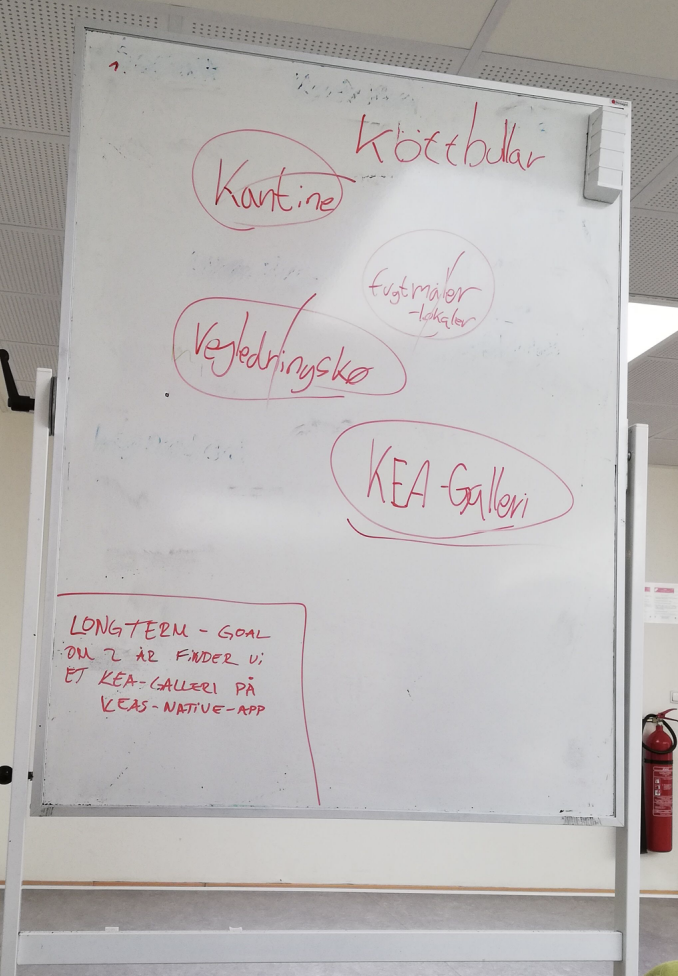 Köttbullar
Kantine
fugtmåler
-lokaler
Vejledningskø
KEA-Galleri
LONGTERM - GOAL
OM 2 ÅR FINDER Vi
ET KEA-GALLERI PÅ
KEAS-NATIVE-APP